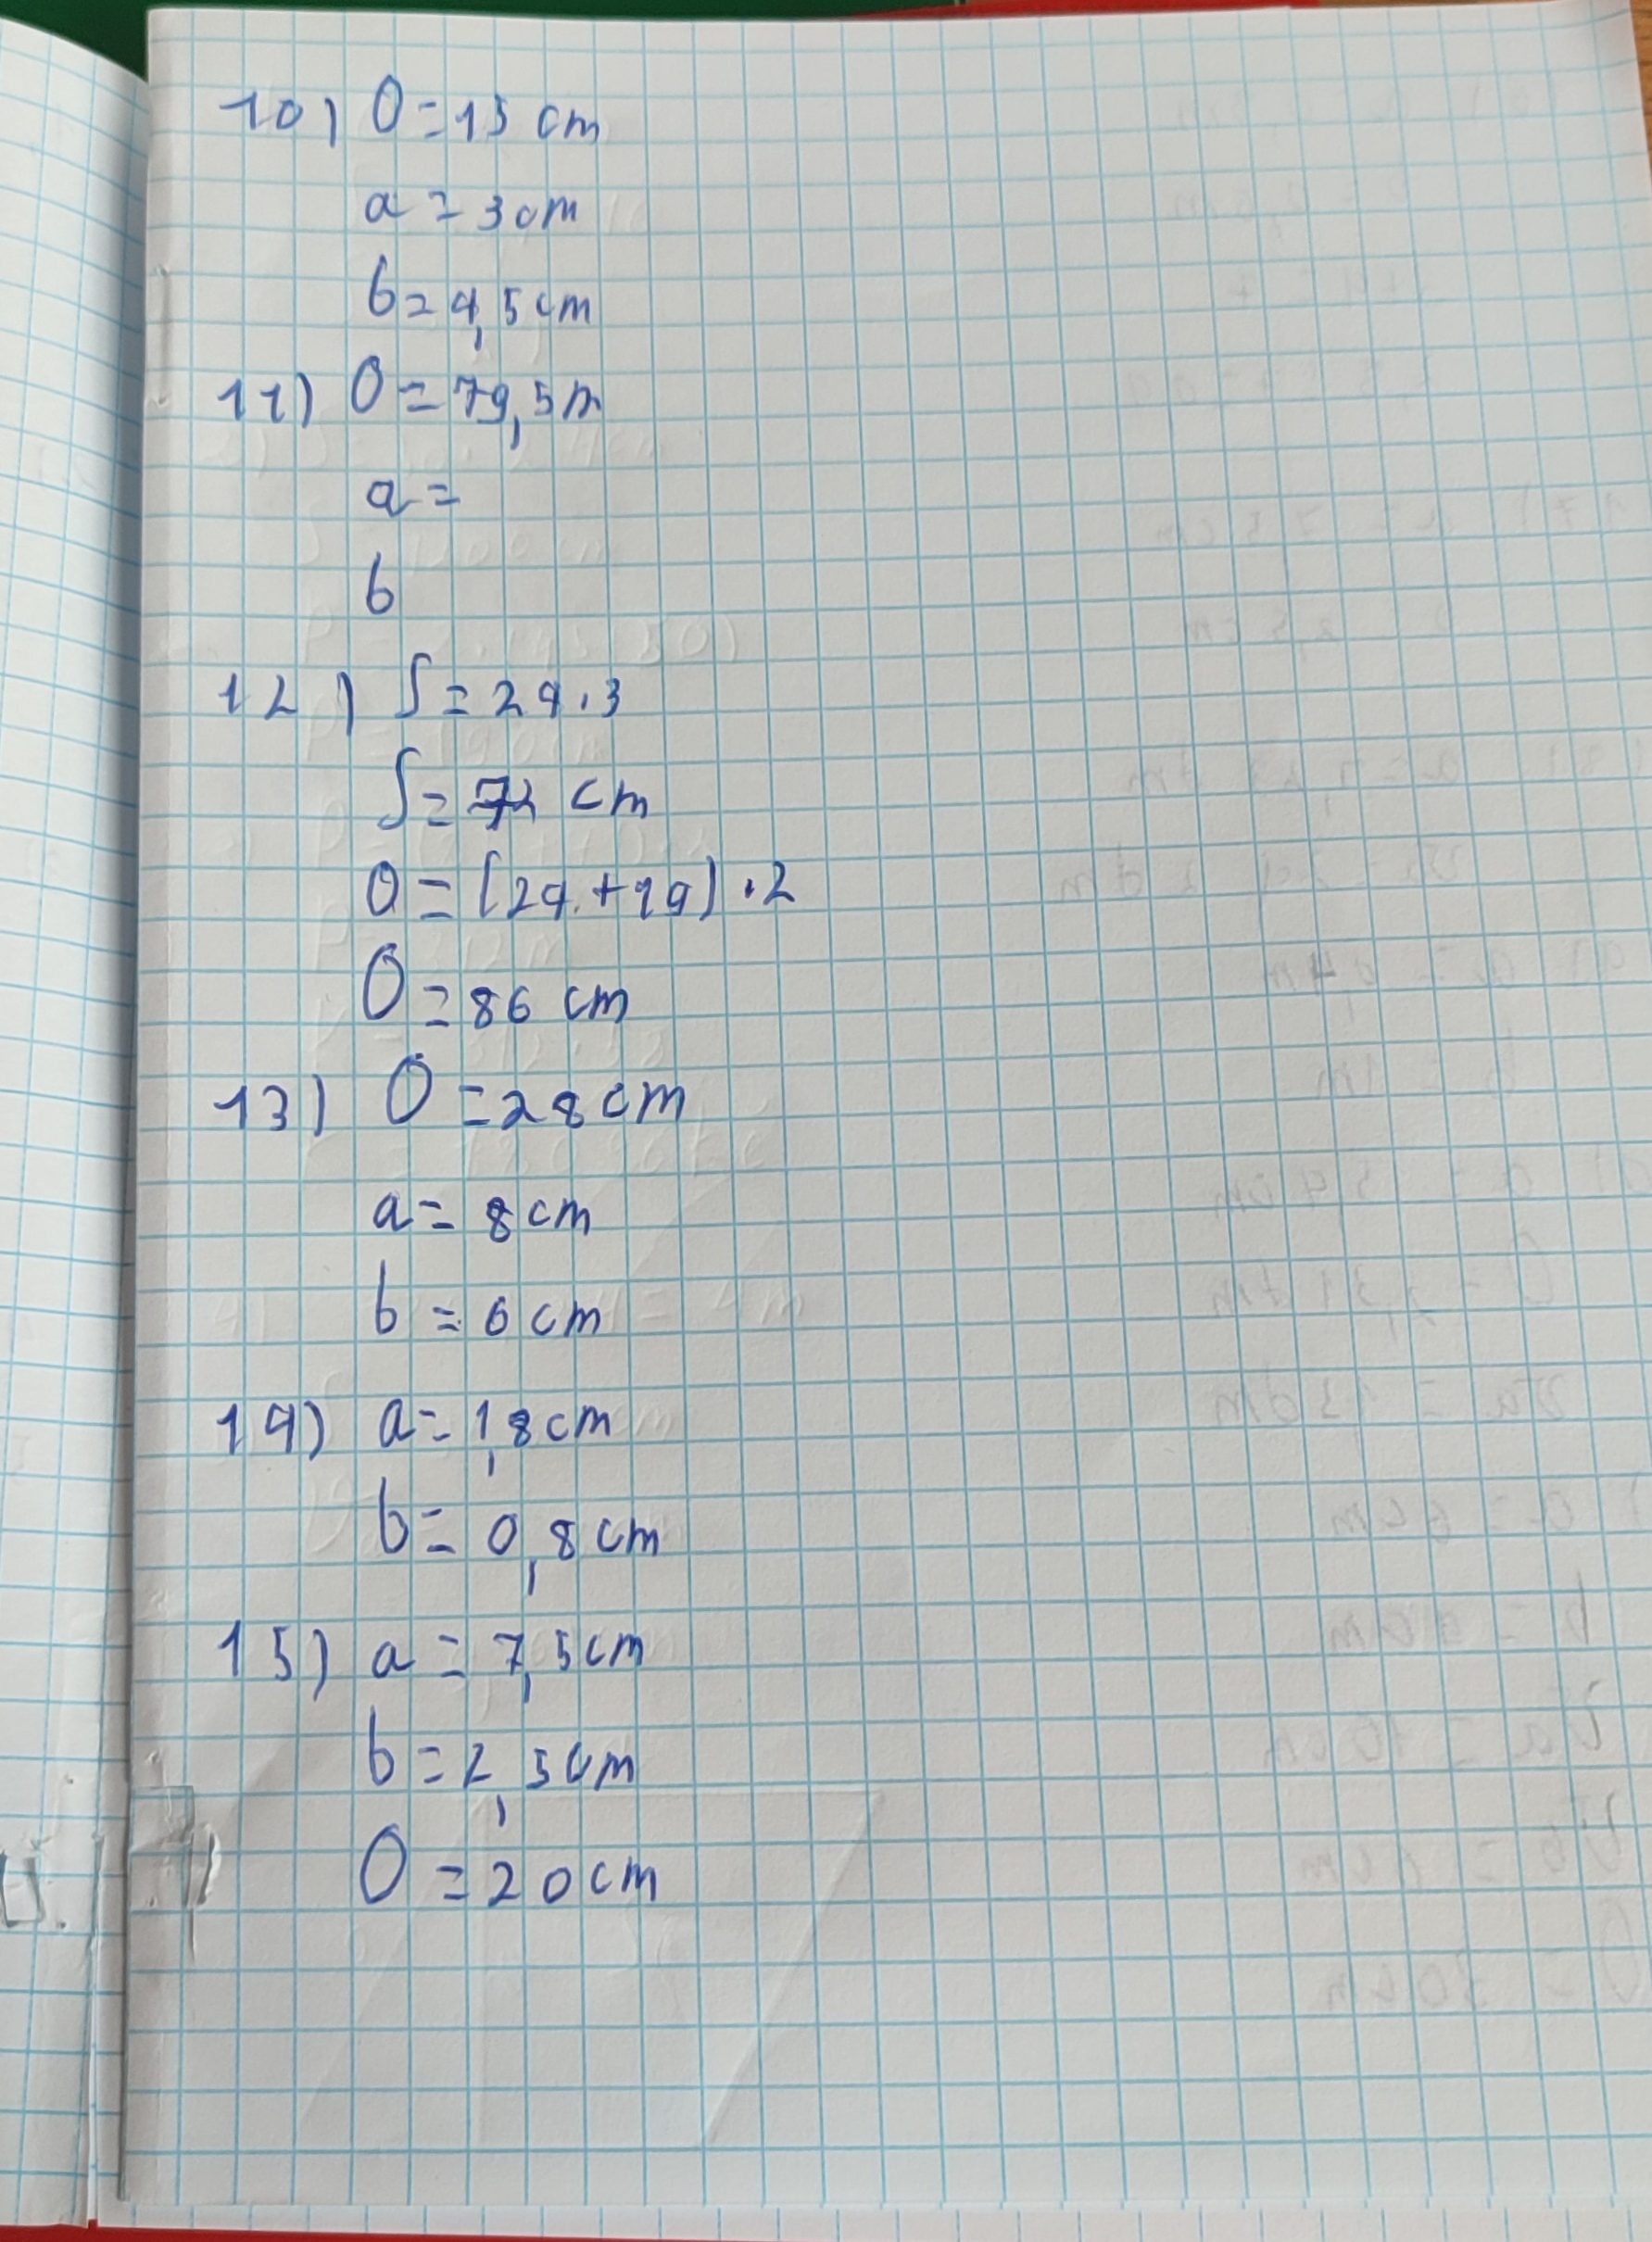 10) O = 15 cm
a = 3 cm
b = 4,5 cm
11) O = 79,5 m
a =
b
12) S = 24 · 3
S = 72 cm
O = (24 + 19) · 2
O = 86 cm
13) O = 28 cm
a = 8 cm
b = 6 cm
14) a = 1,8 cm
b = 0,8 cm
15) a = 7,5 cm
b = 2,5 cm
O = 20 cm